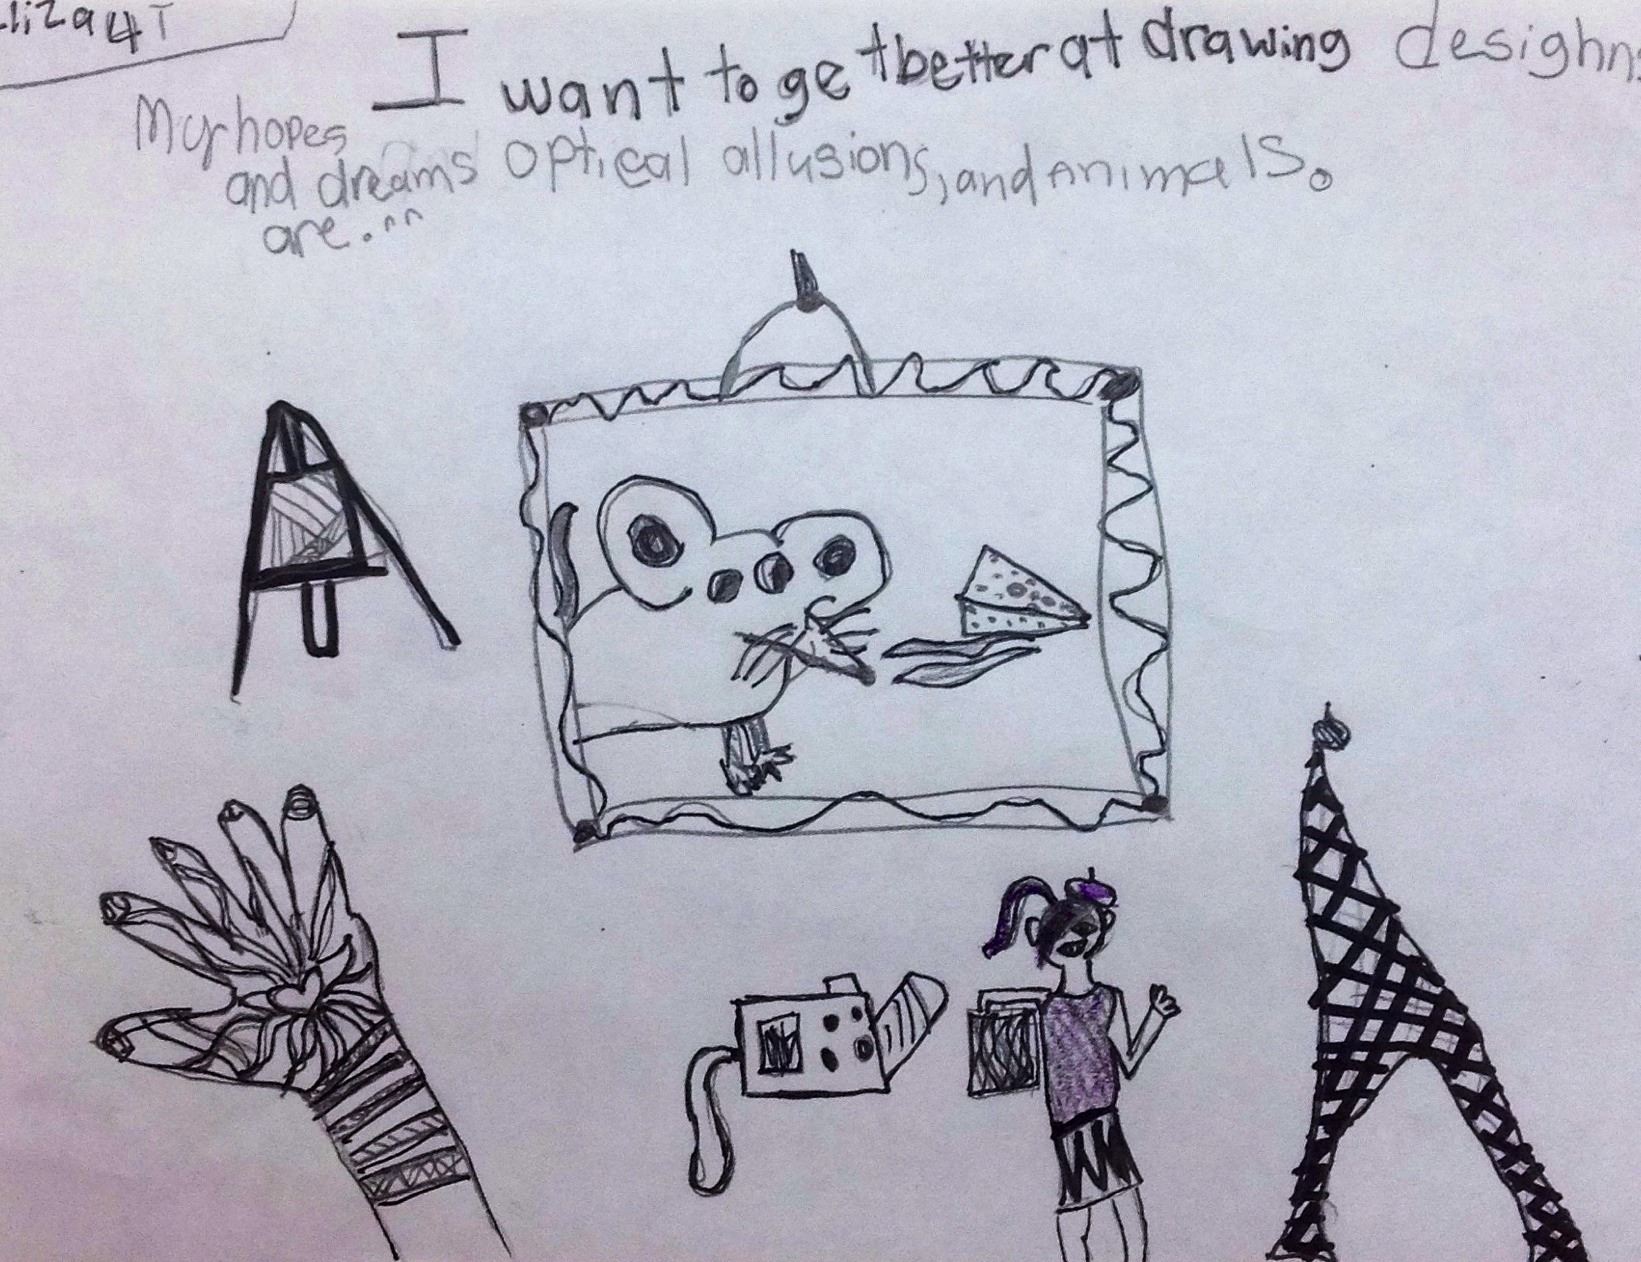 liza 4T
I want to get better at drawing desighns
My hopes
and dreams
are...
optical allusions, and Animals.